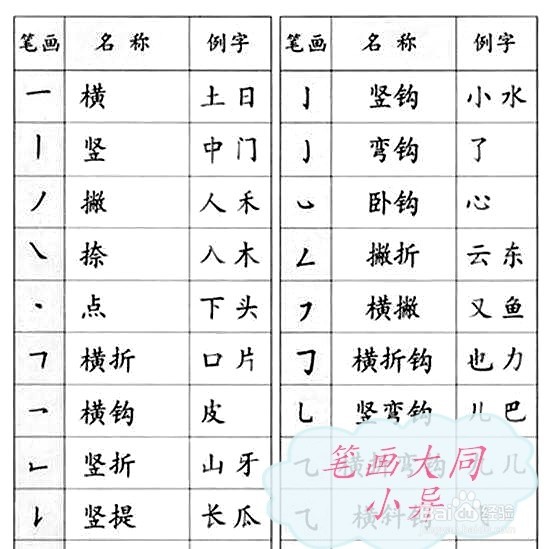 笔画 名称 例字
一 横 土日
丨 竖 中门
丿 撇 人禾
㇏ 捺 入木
丶 点 下头
𠃍 横折 口片
乛 横钩 皮
𠃊 竖折 山牙
𠄌 竖提 长瓜
笔画 名称 例字
亅 竖钩 小水
㇁ 弯钩 了
㇃ 卧钩 心
𠃋 撇折 云东
㇇ 横撇 又鱼
𠃌 横折钩 也力
乚 竖弯钩 儿巴
乙 横折弯钩 九几
⺄ 横斜钩
笔画大同
小异
Baidu经验